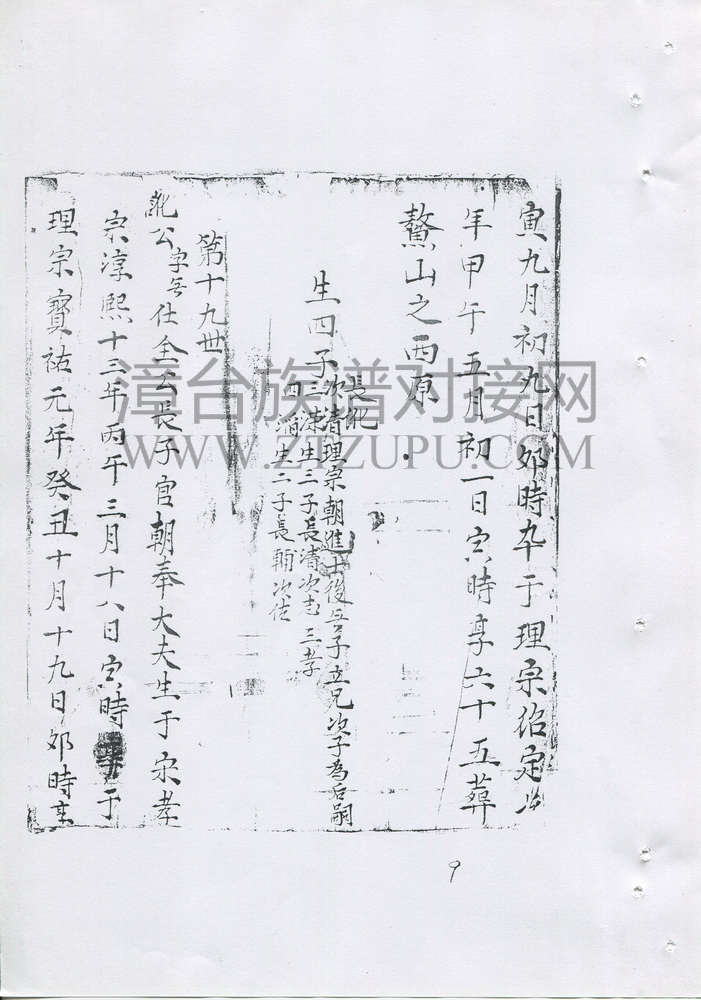 寅九月初九日卯時卒于理宗紹定
年甲午五月初一日寅時享六十五葬
鰲山之西原
生四子
長
次清理宗朝進士後無子立兄次子為后嗣
三 生三子長清次志三孝
四 生二子長輔次佐
第十九世
公字 仕全公長子官朝奉大夫生于宋孝
宗淳熙十三年丙午三月十八日寅時 于
理宗寶祐元年癸丑十月十九日卯時享
漳台族谱对接网
WWW.ZTZUPU.COM
9